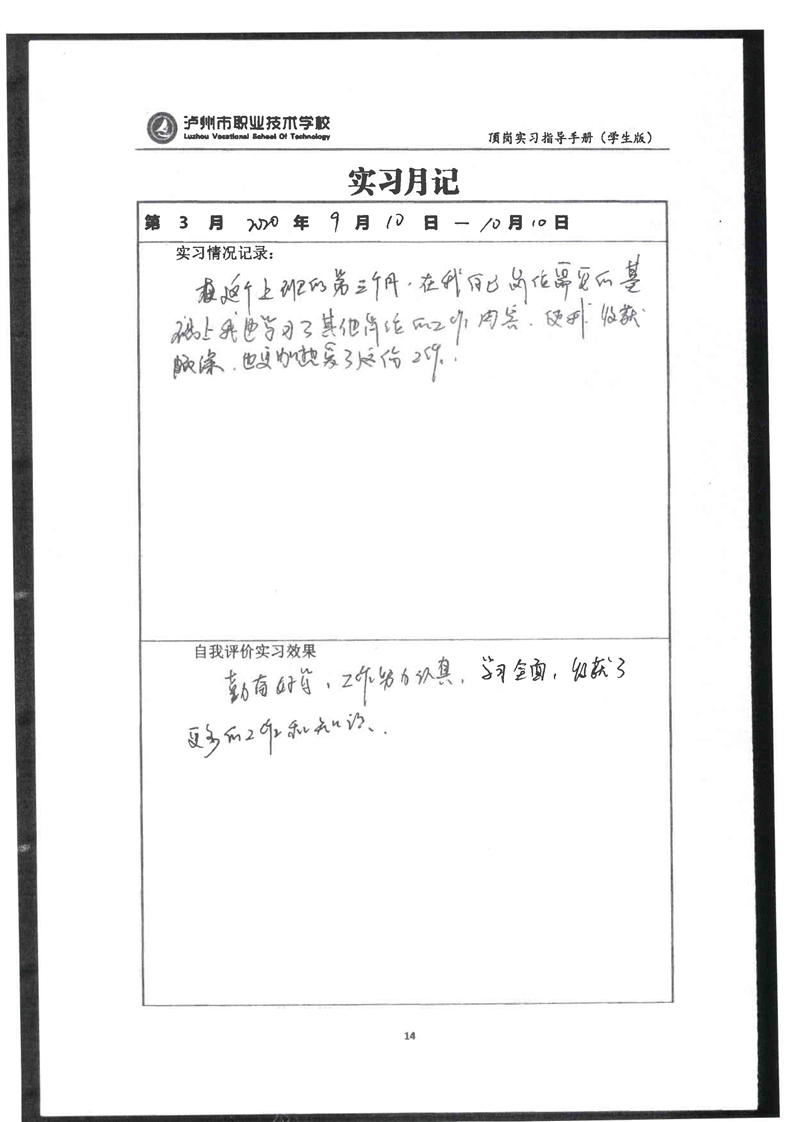 泸州市职业技术学校
Luzhou Vocational School Of Technology
顶岗实习指导手册（学生版）
实习月记
第 3 月 2020 年 9 月 10 日 — 10 月 10 日
实习情况记录：
这个上班的第三个月．在我自己岗位需要的基
础上我也学习了其他岗位的工作内容．使我收获
颇深．也更加热爱了这份工作．
自我评价实习效果
勤奋好学，工作努力认真，学习全面，收获了
更多的工作和知识．
14